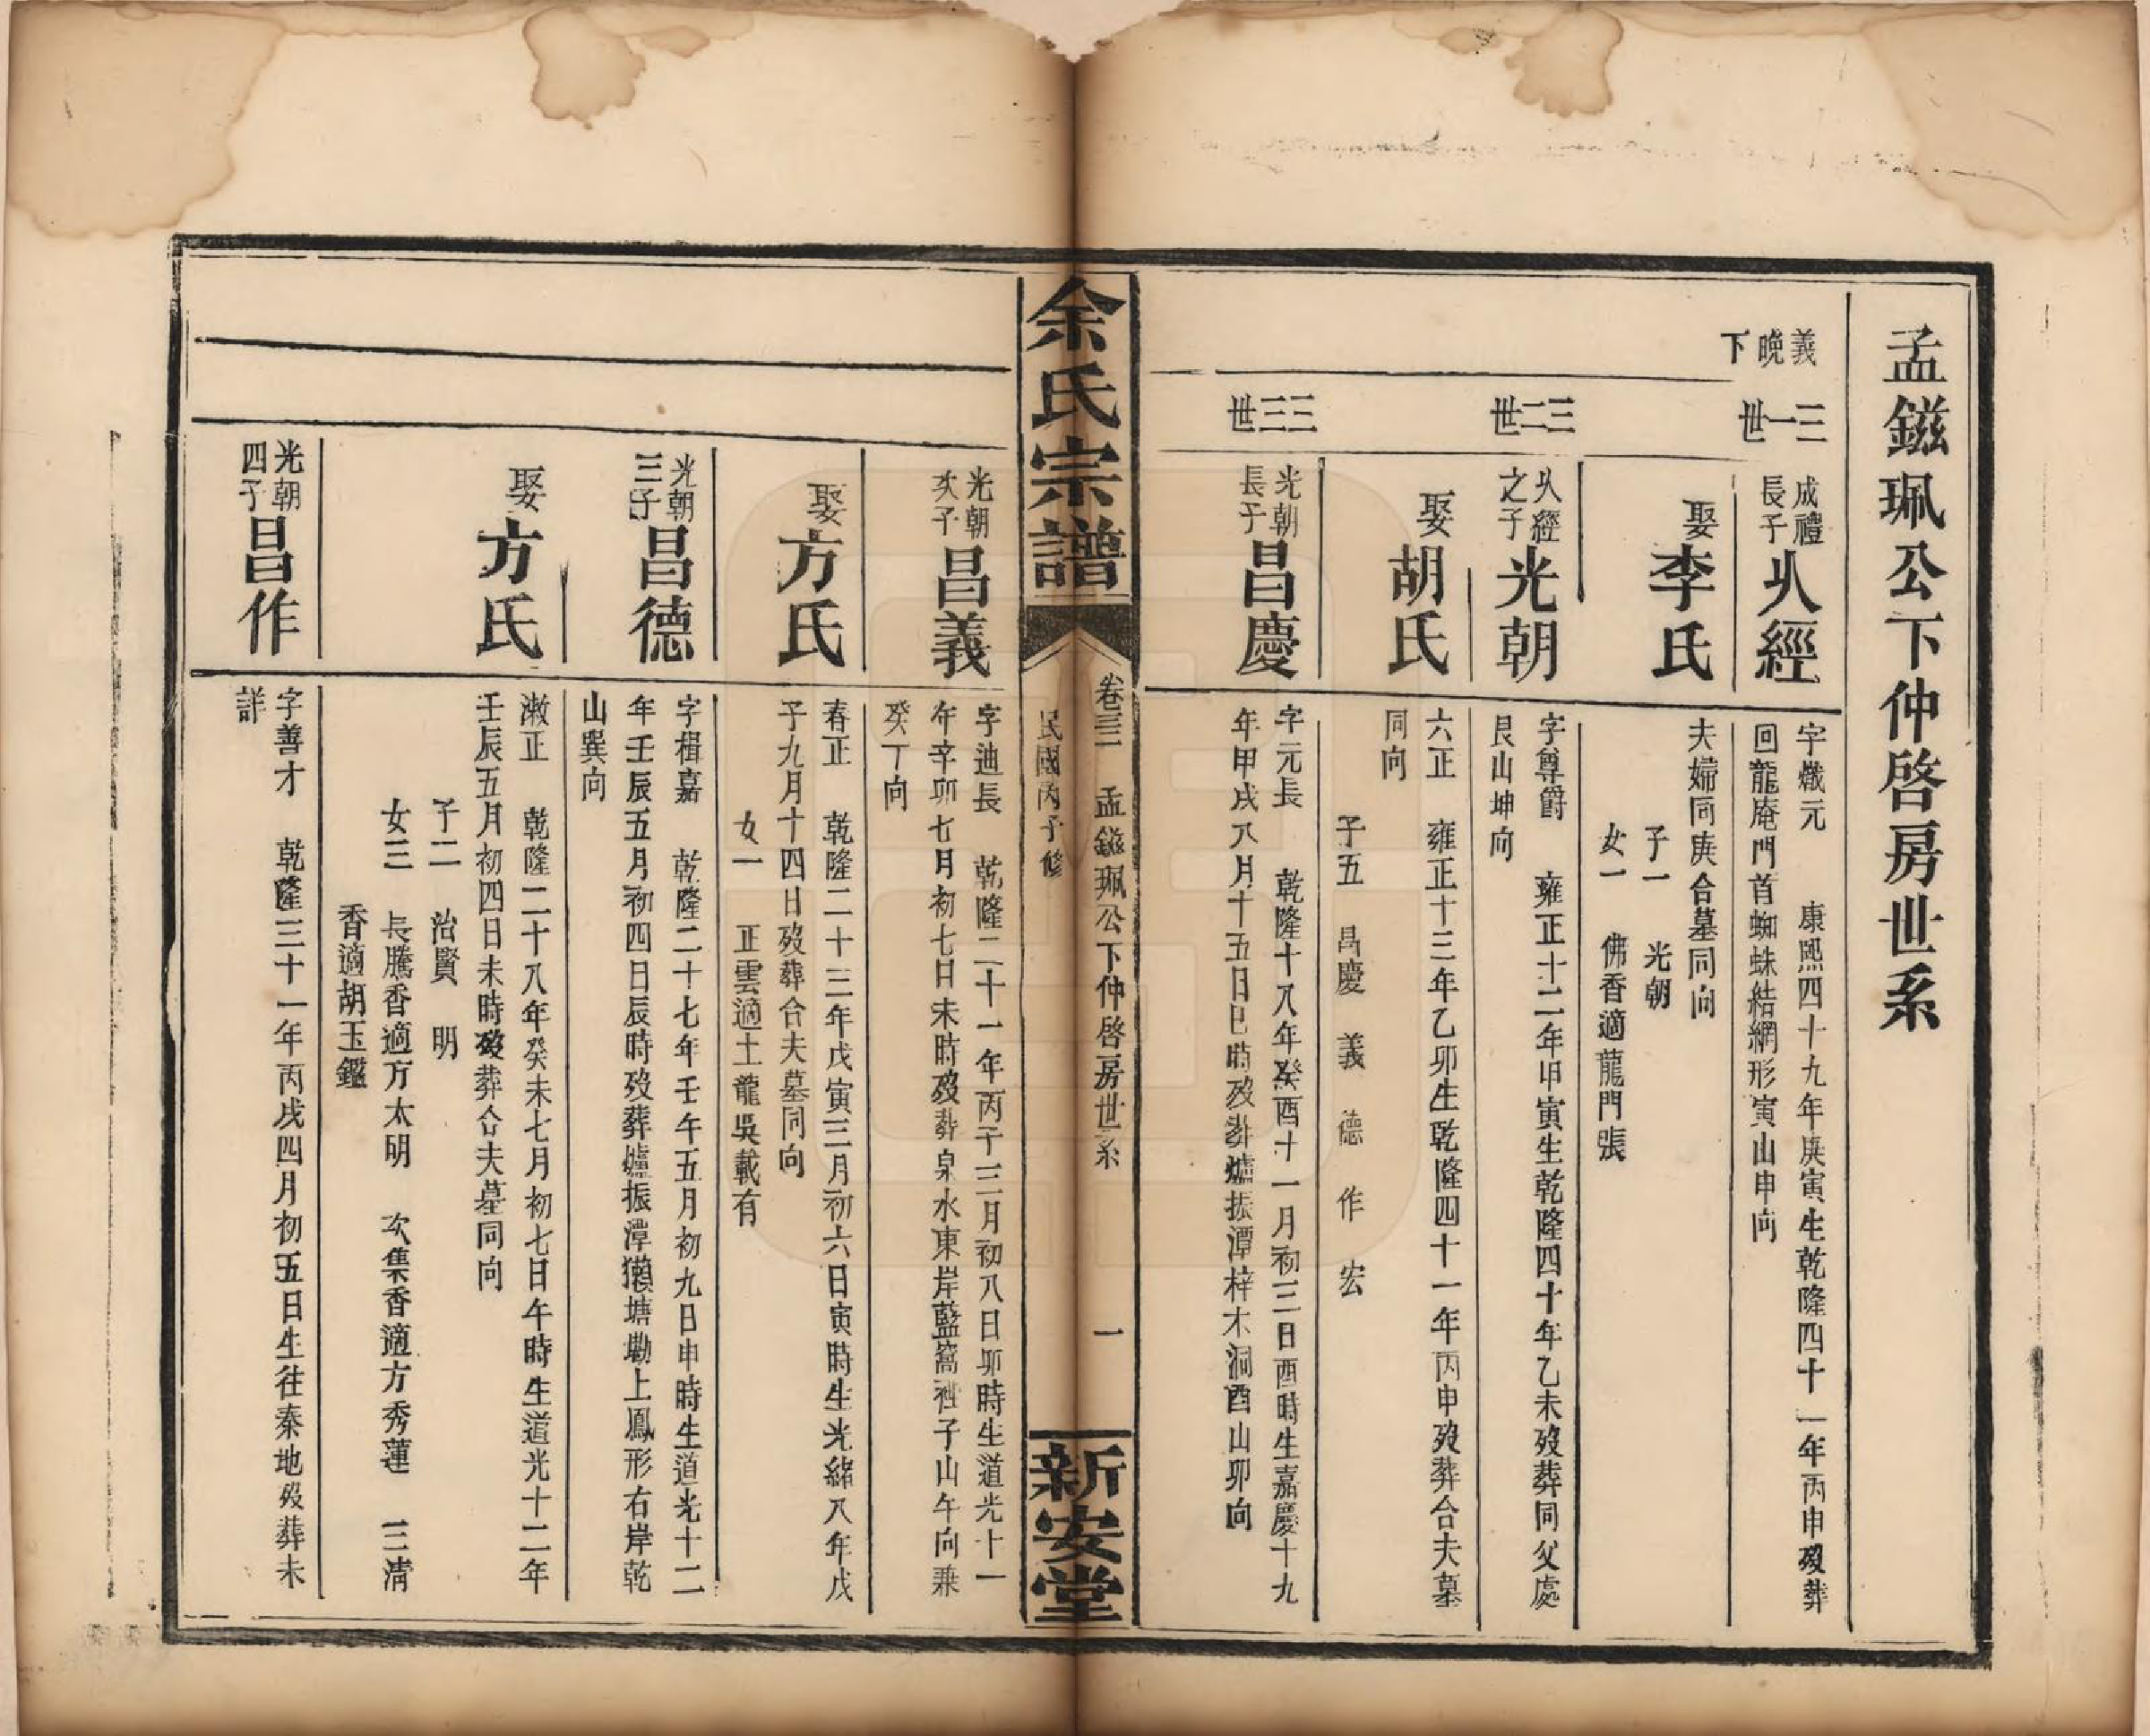 孟鎡珮公下仲啓房世系
義晩下
三一世
成禮長子
乆經
字熾元 康熙四十九年庚寅生乾隆四十一年丙申歿葬
回龍庵門首蜘蛛結網形寅山申向
娶李氏
夫婦同庚合墓同向
子一 光朝
女一 佛香適龍門張
三二世
乆經之子
光朝
字尊爵 雍正十二年甲寅生乾隆四十年乙未歿葬同父處
艮山坤向
娶胡氏
六正 雍正十三年乙卯生乾隆四十一年丙申歿葬合夫墓
同向
子五 昌慶 義 德 作 宏
三三世
光朝長子
昌慶
字元長 乾隆十八年癸酉十一月初三日酉時生嘉慶十九
年甲戌八月十五日巳時歿葬爐振潭梓木洞酉山卯向
余氏宗譜
卷三 孟鎡珮公下仲啓房世系 一
民國丙子修
新安堂
光朝次子
昌義
字迪長 乾隆二十一年丙子三月初八日卯時生道光十一
年辛卯七月初七日未時歿葬泉水東岸藍窩裡子山午向兼
癸丁向
娶方氏
春正 乾隆二十三年戊寅三月初六日寅時生光緒八年戊
子九月十四日歿葬合夫墓同向
女一 正雲適土龍吳載有
光朝三子
昌德
字楫嘉 乾隆二十七年壬午五月初九日申時生道光十二
年壬辰五月初四日辰時歿葬爐振潭獺塘墈上鳳形右岸乾
山巽向
娶方氏
漱正 乾隆二十八年癸未七月初七日午時生道光十二年
壬辰五月初四日未時歿葬合夫墓同向
子二 治賢 明
女三 長騰香適方太明 次集香適方秀蓮 三清
香適胡玉鑑
光朝四子
昌作
字善才 乾隆三十一年丙戌四月初五日生往秦地歿葬未
詳